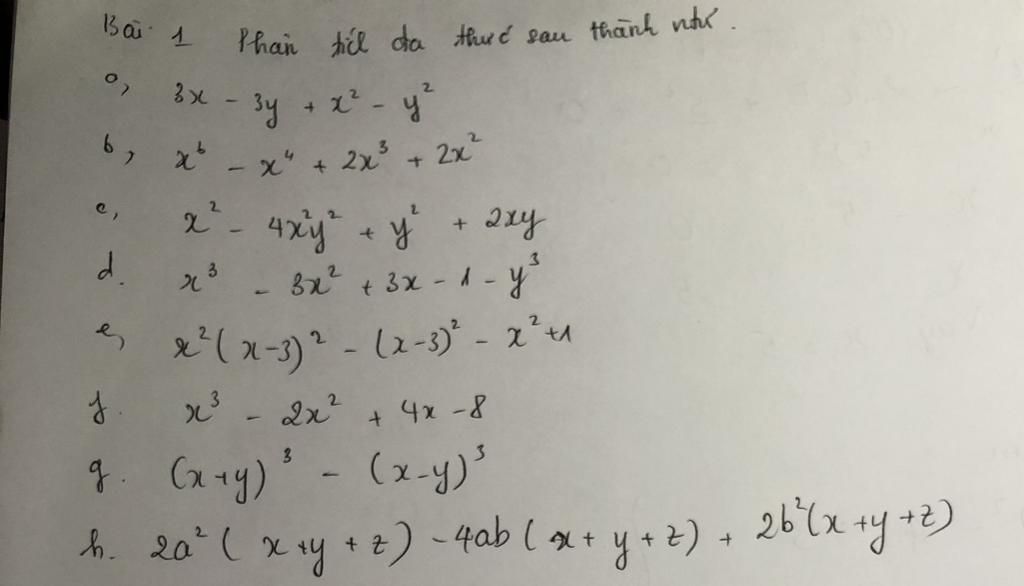 Bài 1 Phân tích đa thức sau thành nhtử.
a, 3x - 3y + x² - y²
b, x⁶ - x⁴ + 2x³ + 2x²
c, x² - 4x²y² + y² + 2xy
d. x³ - 3x² + 3x - 1 - y³
e, x²(x-3)² - (x-3)² - x² + 1
f. x³ - 2x² + 4x - 8
g. (x+y)³ - (x-y)³
h. 2a²(x+y+z) - 4ab(x+y+z) + 2b²(x+y+z)